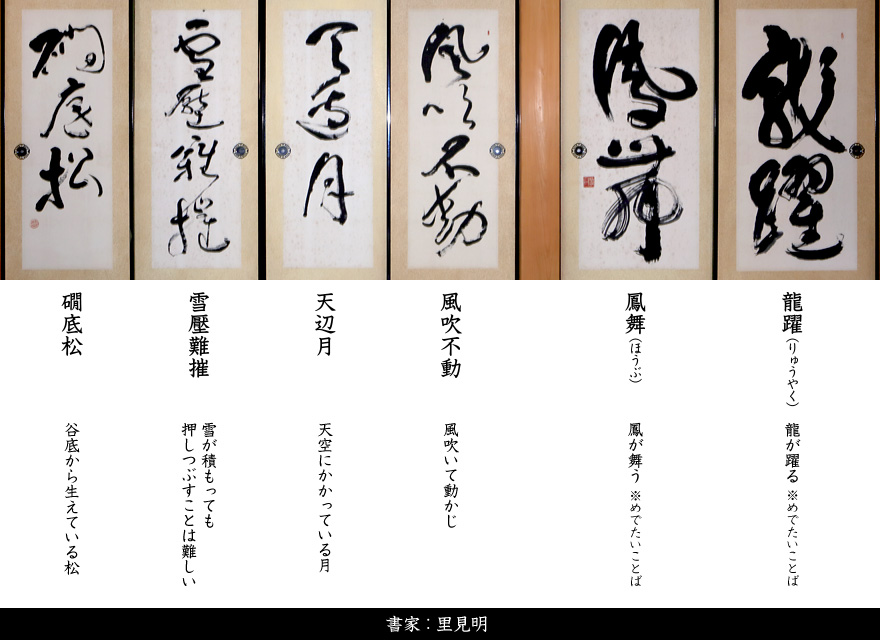 龍躍
鳳舞
風吹不動
天辺月
雪壓難摧
磵底松
龍躍(りゅうやく)
龍が躍る ※めでたいことば
鳳舞(ほうぶ)
鳳が舞う ※めでたいことば
風吹不動
風吹いて動かじ
天辺月
天空にかかっている月
雪壓難摧
雪が積もっても
押しつぶすことは難しい
磵底松
谷底から生えている松
書家：里見明